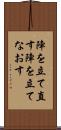 陣を立て直
す陣を立て
なおす